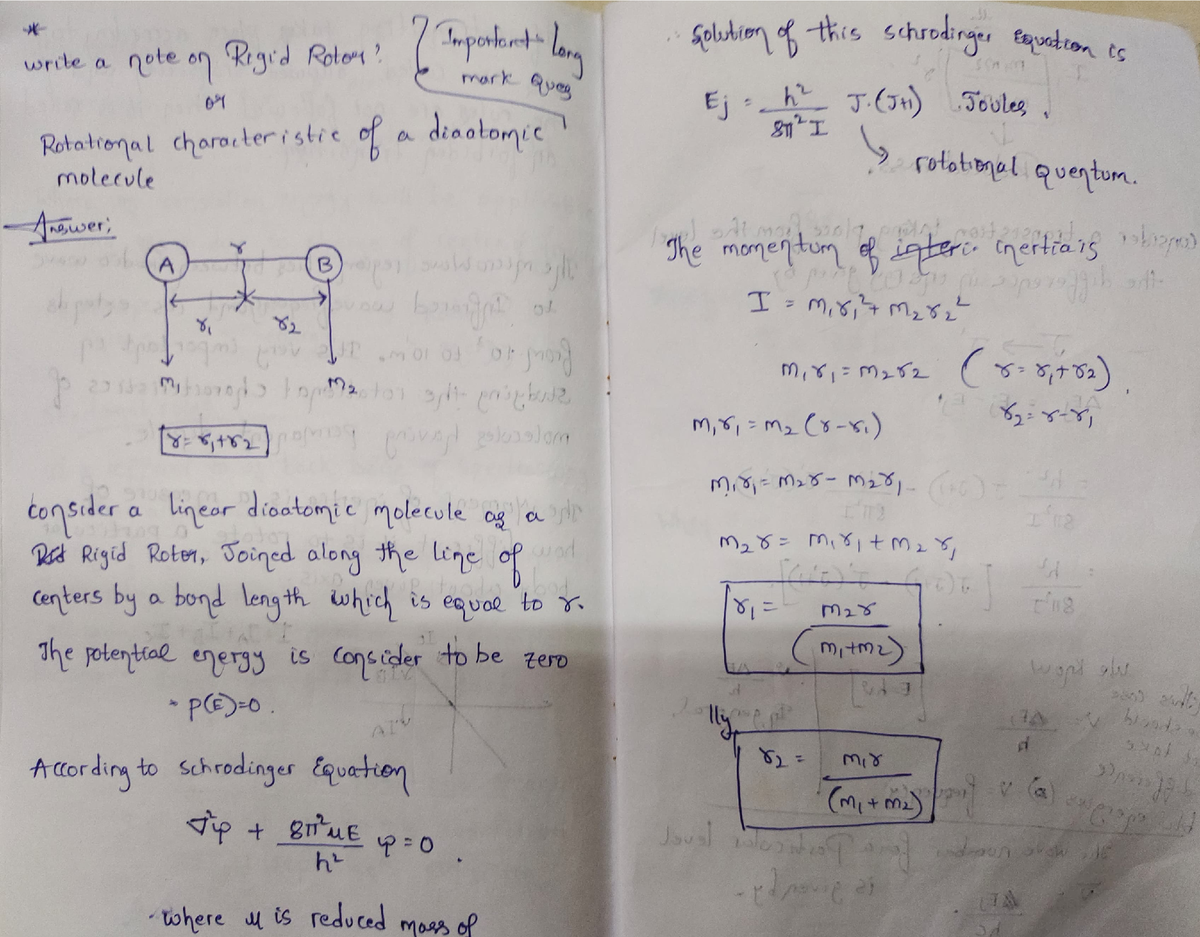 *
write a note on Rigid Rotor?
Important Long
mark Ques
or
Rotational characteristic of a diaotomic
molecule
Answer:
A r B
r₁ r₂
m₁ m₂
r = r₁+r₂
Consider a linear diaotomic molecule as a
Rigid Rotor, Joined along the line of
centers by a bond length which is equal to r.
The potential energy is consider to be zero
P(E)=0.
According to schrodinger Equation
∇²φ + 8π²μE/h² φ = 0.
where μ is reduced mass of
∴ Solution of this schrodinger Equation is
Ej = h²/8π²I J.(J+1) Joules.
rotational quentum.
The momentum of inertia is
I = m₁r₁² + m₂r₂²
m₁r₁ = m₂r₂ (r = r₁+r₂).
m₁r₁ = m₂(r-r₁) r₂ = r-r₁
m₁r₁ = m₂r - m₂r₁
m₂r = m₁r₁ + m₂r₁
r₁ = m₂r/(m₁+m₂)
lly
r₂ = m₁r/(m₁+m₂)